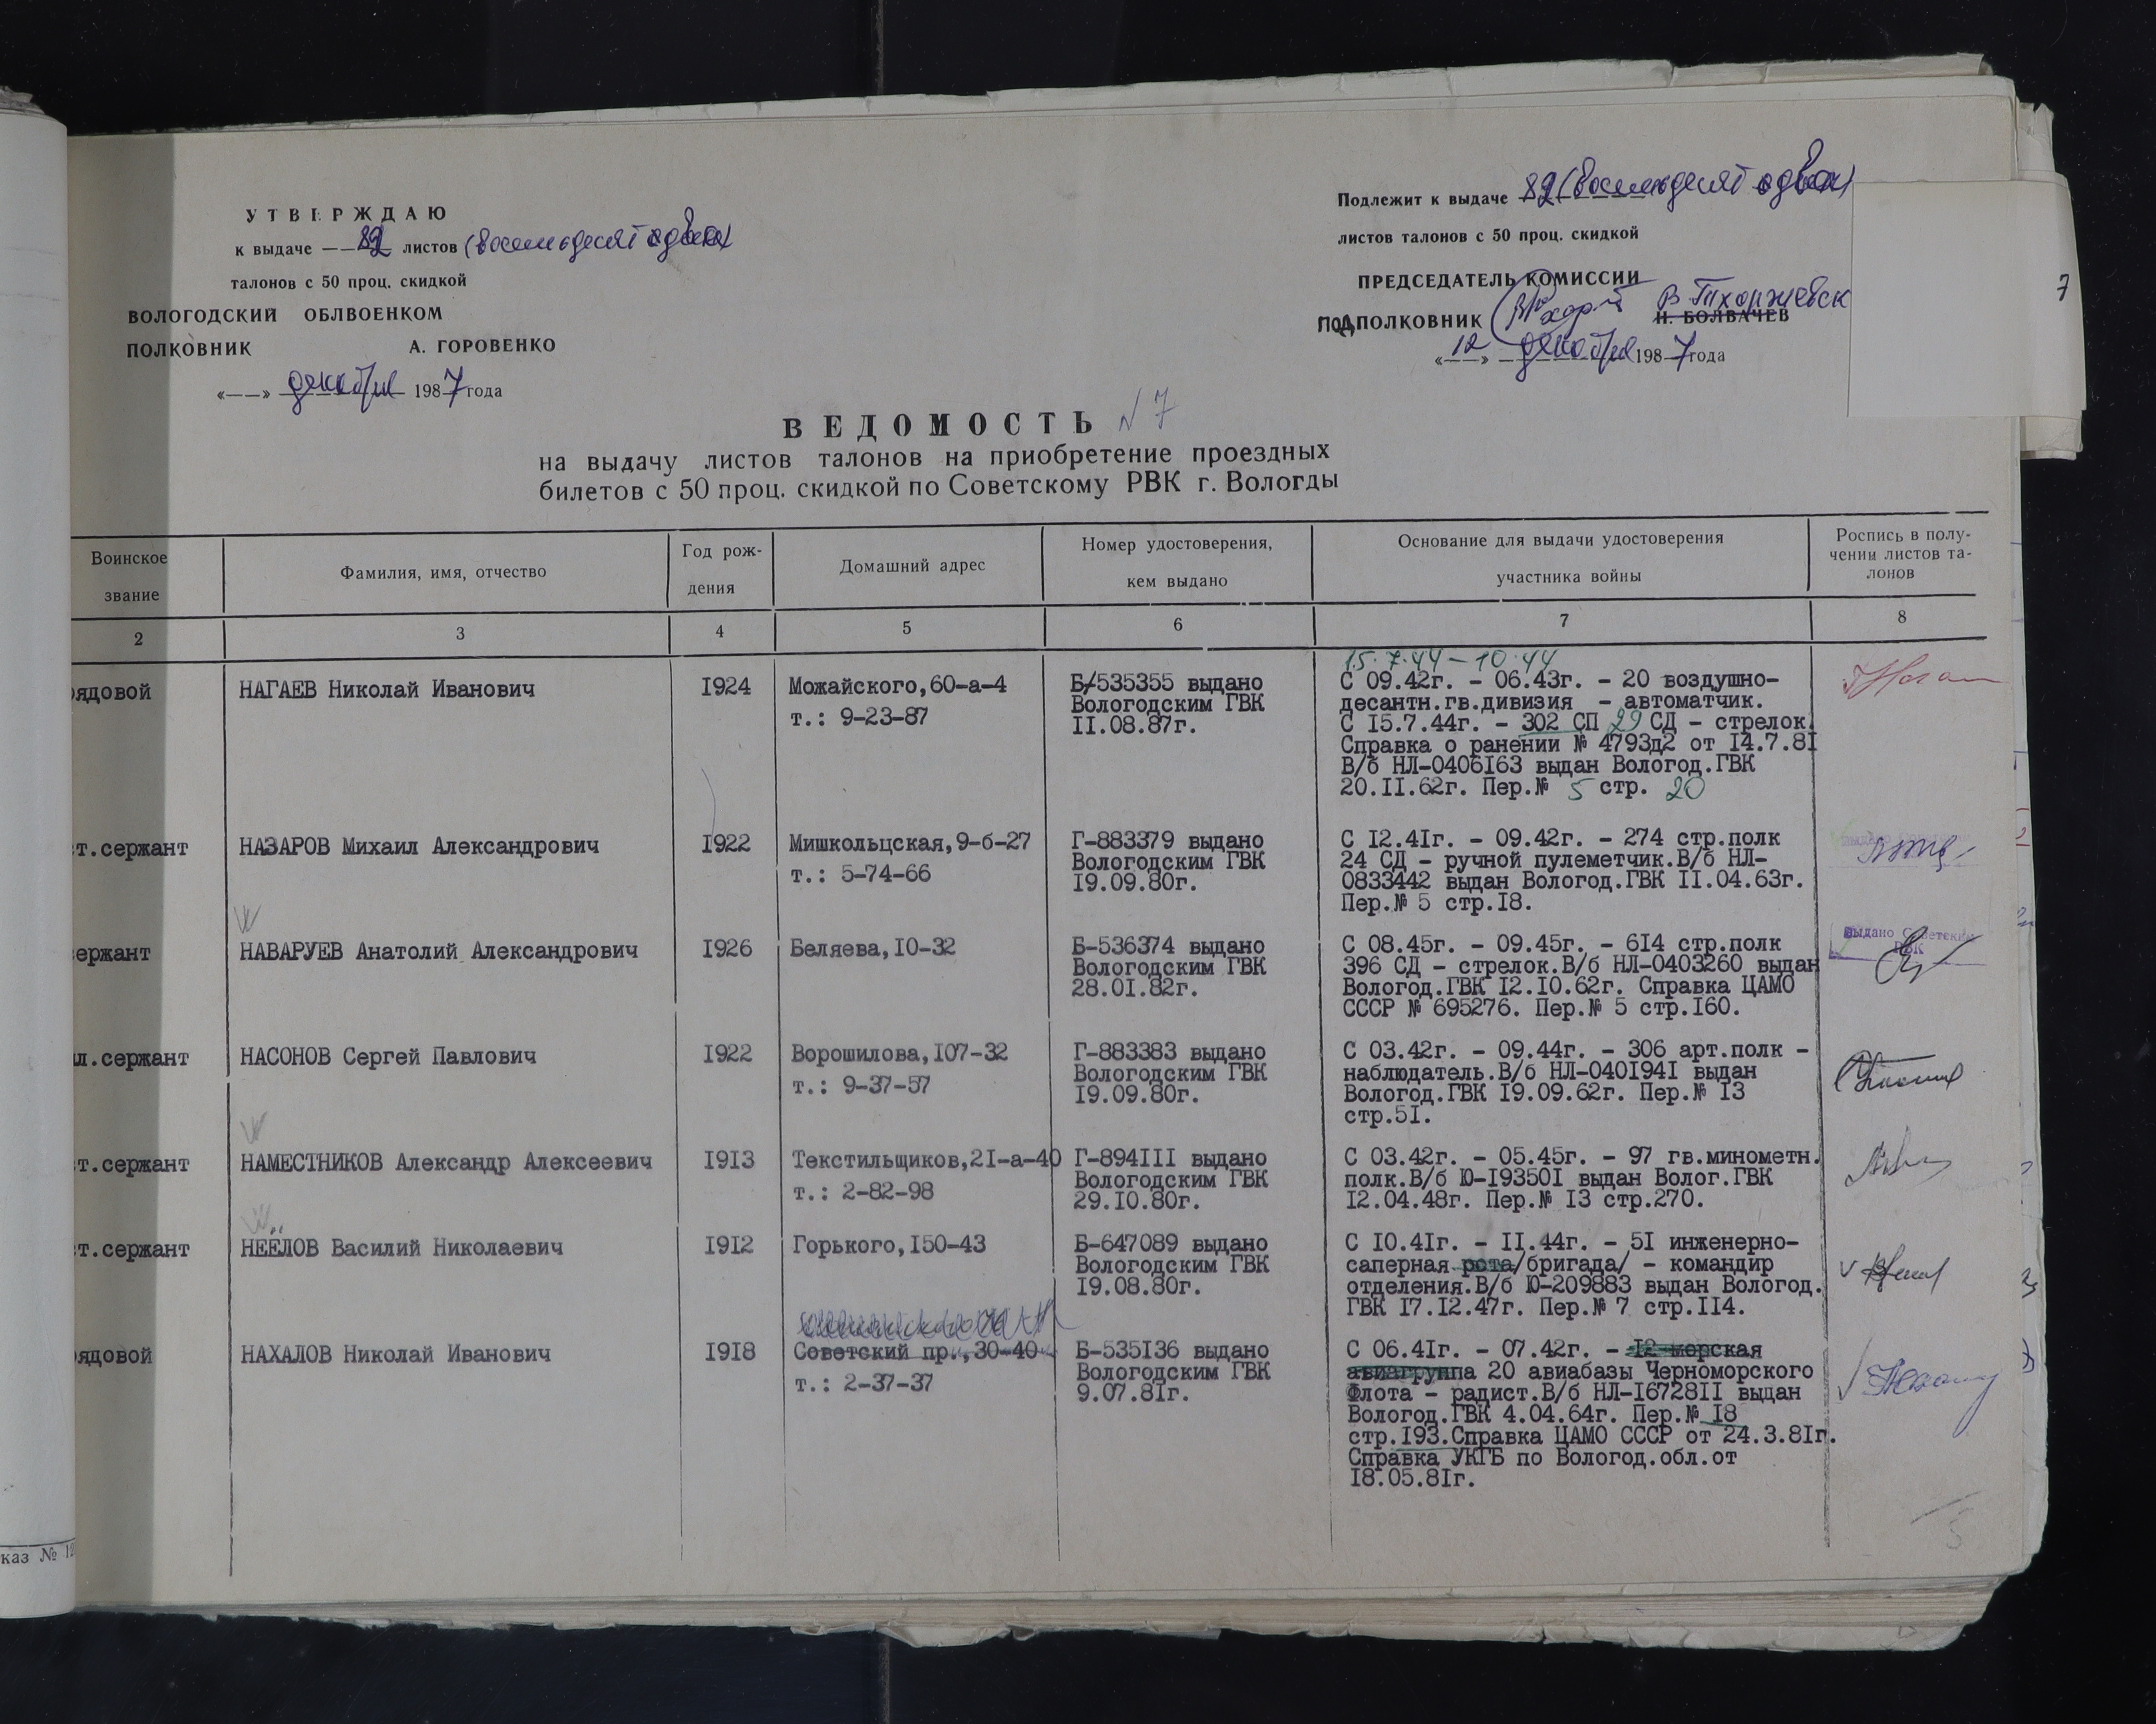 УТВЕРЖДАЮ
к выдаче 82 листов (восемьдесят два)
талонов с 50 проц. скидкой
ВОЛОГОДСКИЙ ОБЛВОЕНКОМ
ПОЛКОВНИК А. ГОРОВЕНКО
«——» декабря 1987 года
Подлежит к выдаче 82 (восемьдесят два)
листов талонов с 50 проц. скидкой
ПРЕДСЕДАТЕЛЬ КОМИССИИ
ПОДПОЛКОВНИК В Тхоржевск
Н. БОЛВАЧЕВ
«12» декабря 1987 года
7
ВЕДОМОСТЬ N 7
на выдачу листов талонов на приобретение проездных
билетов с 50 проц. скидкой по Советскому РВК г. Вологды
Воинское
звание
Фамилия, имя, отчество
Год рож-
дения
Домашний адрес
Номер удостоверения,
кем выдано
Основание для выдачи удостоверения
участника войны
Роспись в полу-
чении листов та-
лонов
2 3 4 5 6 7 8
рядовой
НАГАЕВ Николай Иванович
1924
Можайского,60-а-4
т.: 9-23-87
Б/535355 выдано
Вологодским ГВК
11.08.87г.
15.7.44 - 10.44
С 09.42г. - 06.43г. - 20 воздушно-
десантн.гв.дивизия - автоматчик.
С 15.7.44г. - 302 СП 29 СД - стрелок.
Справка о ранении № 4793д2 от 14.7.81
В/б НЛ-0406163 выдан Вологод.ГВК
20.11.62г. Пер.№ 5 стр. 20
т.сержант
НАЗАРОВ Михаил Александрович
1922
Мишкольцская,9-б-27
т.: 5-74-66
Г-883379 выдано
Вологодским ГВК
19.09.80г.
С 12.41г. - 09.42г. - 274 стр.полк
24 СД - ручной пулеметчик.В/б НЛ-
0833442 выдан Вологод.ГВК 11.04.63г.
Пер.№ 5 стр.18.
ержант
НАВАРУЕВ Анатолий Александрович
1926
Беляева,10-32
Б-536374 выдано
Вологодским ГВК
28.01.82г.
С 08.45г. - 09.45г. - 614 стр.полк
396 СД - стрелок.В/б НЛ-0403260 выдан
Вологод.ГВК 12.10.62г. Справка ЦАМО
СССР № 695276. Пер.№ 5 стр.160.
Выдано Советским
РВК
л.сержант
НАСОНОВ Сергей Павлович
1922
Ворошилова,107-32
т.: 9-37-57
Г-883383 выдано
Вологодским ГВК
19.09.80г.
С 03.42г. - 09.44г. - 306 арт.полк -
наблюдатель.В/б НЛ-0401941 выдан
Вологод.ГВК 19.09.62г. Пер.№ 13
стр.51.
т.сержант
НАМЕСТНИКОВ Александр Алексеевич
1913
Текстильщиков,21-а-40
т.: 2-82-98
Г-894111 выдано
Вологодским ГВК
29.10.80г.
С 03.42г. - 05.45г. - 97 гв.минометн.
полк.В/б Ю-193501 выдан Волог.ГВК
12.04.48г. Пер.№ 13 стр.270.
т.сержант
НЕЁЛОВ Василий Николаевич
1912
Горького,150-43
Б-647089 выдано
Вологодским ГВК
19.08.80г.
С 10.41г. - 11.44г. - 51 инженерно-
саперная рота/бригада/ - командир
отделения.В/б Ю-209883 выдан Вологод.
ГВК 17.12.47г. Пер.№ 7 стр.114.
рядовой
НАХАЛОВ Николай Иванович
1918
Советский пр.,30-40
т.: 2-37-37
Б-535136 выдано
Вологодским ГВК
9.07.81г.
С 06.41г. - 07.42г. - 12 морская
авиагруппа 20 авиабазы Черноморского
Флота - радист.В/б НЛ-1672811 выдан
Вологод.ГВК 4.04.64г. Пер.№ 18
стр.193.Справка ЦАМО СССР от 24.3.81г.
Справка УКГБ по Вологод.обл.от
18.05.81г.
каз № 12